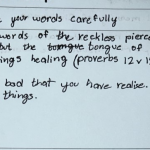 your words carefully
words of the reckless pierce
but the tongue of
ings healing (proverbs 12 v 1
bad that you have realise.
things.